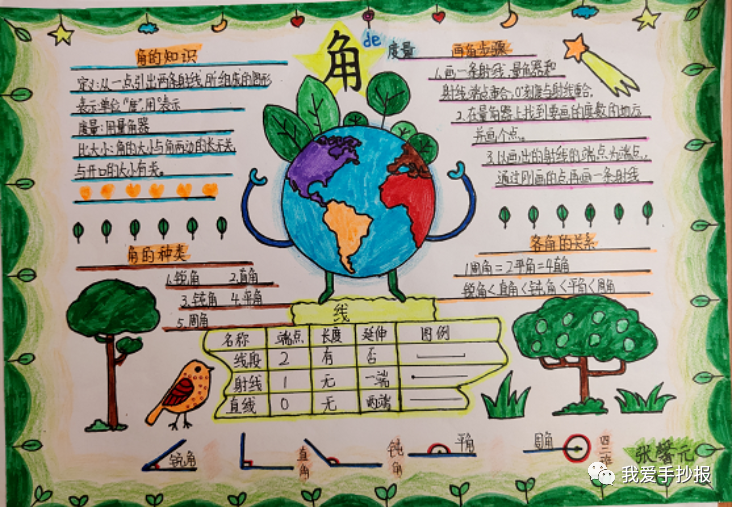 角 de 度量
角的知识
定义:从一点引出两条射线,所组成的图形
表示单位"度",用°表示
度量:用量角器
比大小:角的大小与角两边的长短无关,
与开口的大小有关。
画角步骤
1.画一条射线,量角器和
射线端点重合,0°刻度与射线重合。
2.在量角器上找到要画的度数的地方
并画个点。
3.以画出的射线的端点为端点,
通过刚画的点,再画一条射线
角的种类
1.锐角 2.直角
3.钝角 4.平角
5.周角
各角的关系
1周角=2平角=4直角
锐角<直角<钝角<平角<周角
线
名称 端点 长度 延伸 图例
线段 2 有 否
射线 1 无 一端
直线 0 无 两端
锐角
直角
钝角
平角
周角
四二班
张馨元
我爱手抄报